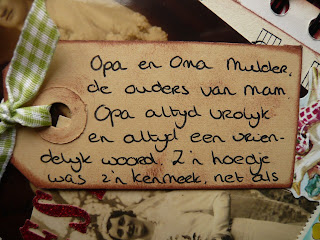 Opa en Oma Mulder,
de ouders van mam
Opa altyd vrolyk
en altyd een vrien-
delyk woord. Z'n hoedje
was z'n kenmerk, net als